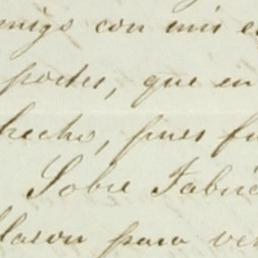 amigo con mis e
podes, que en
hecho, pues fu
Sobre Fabri
llaron para ve